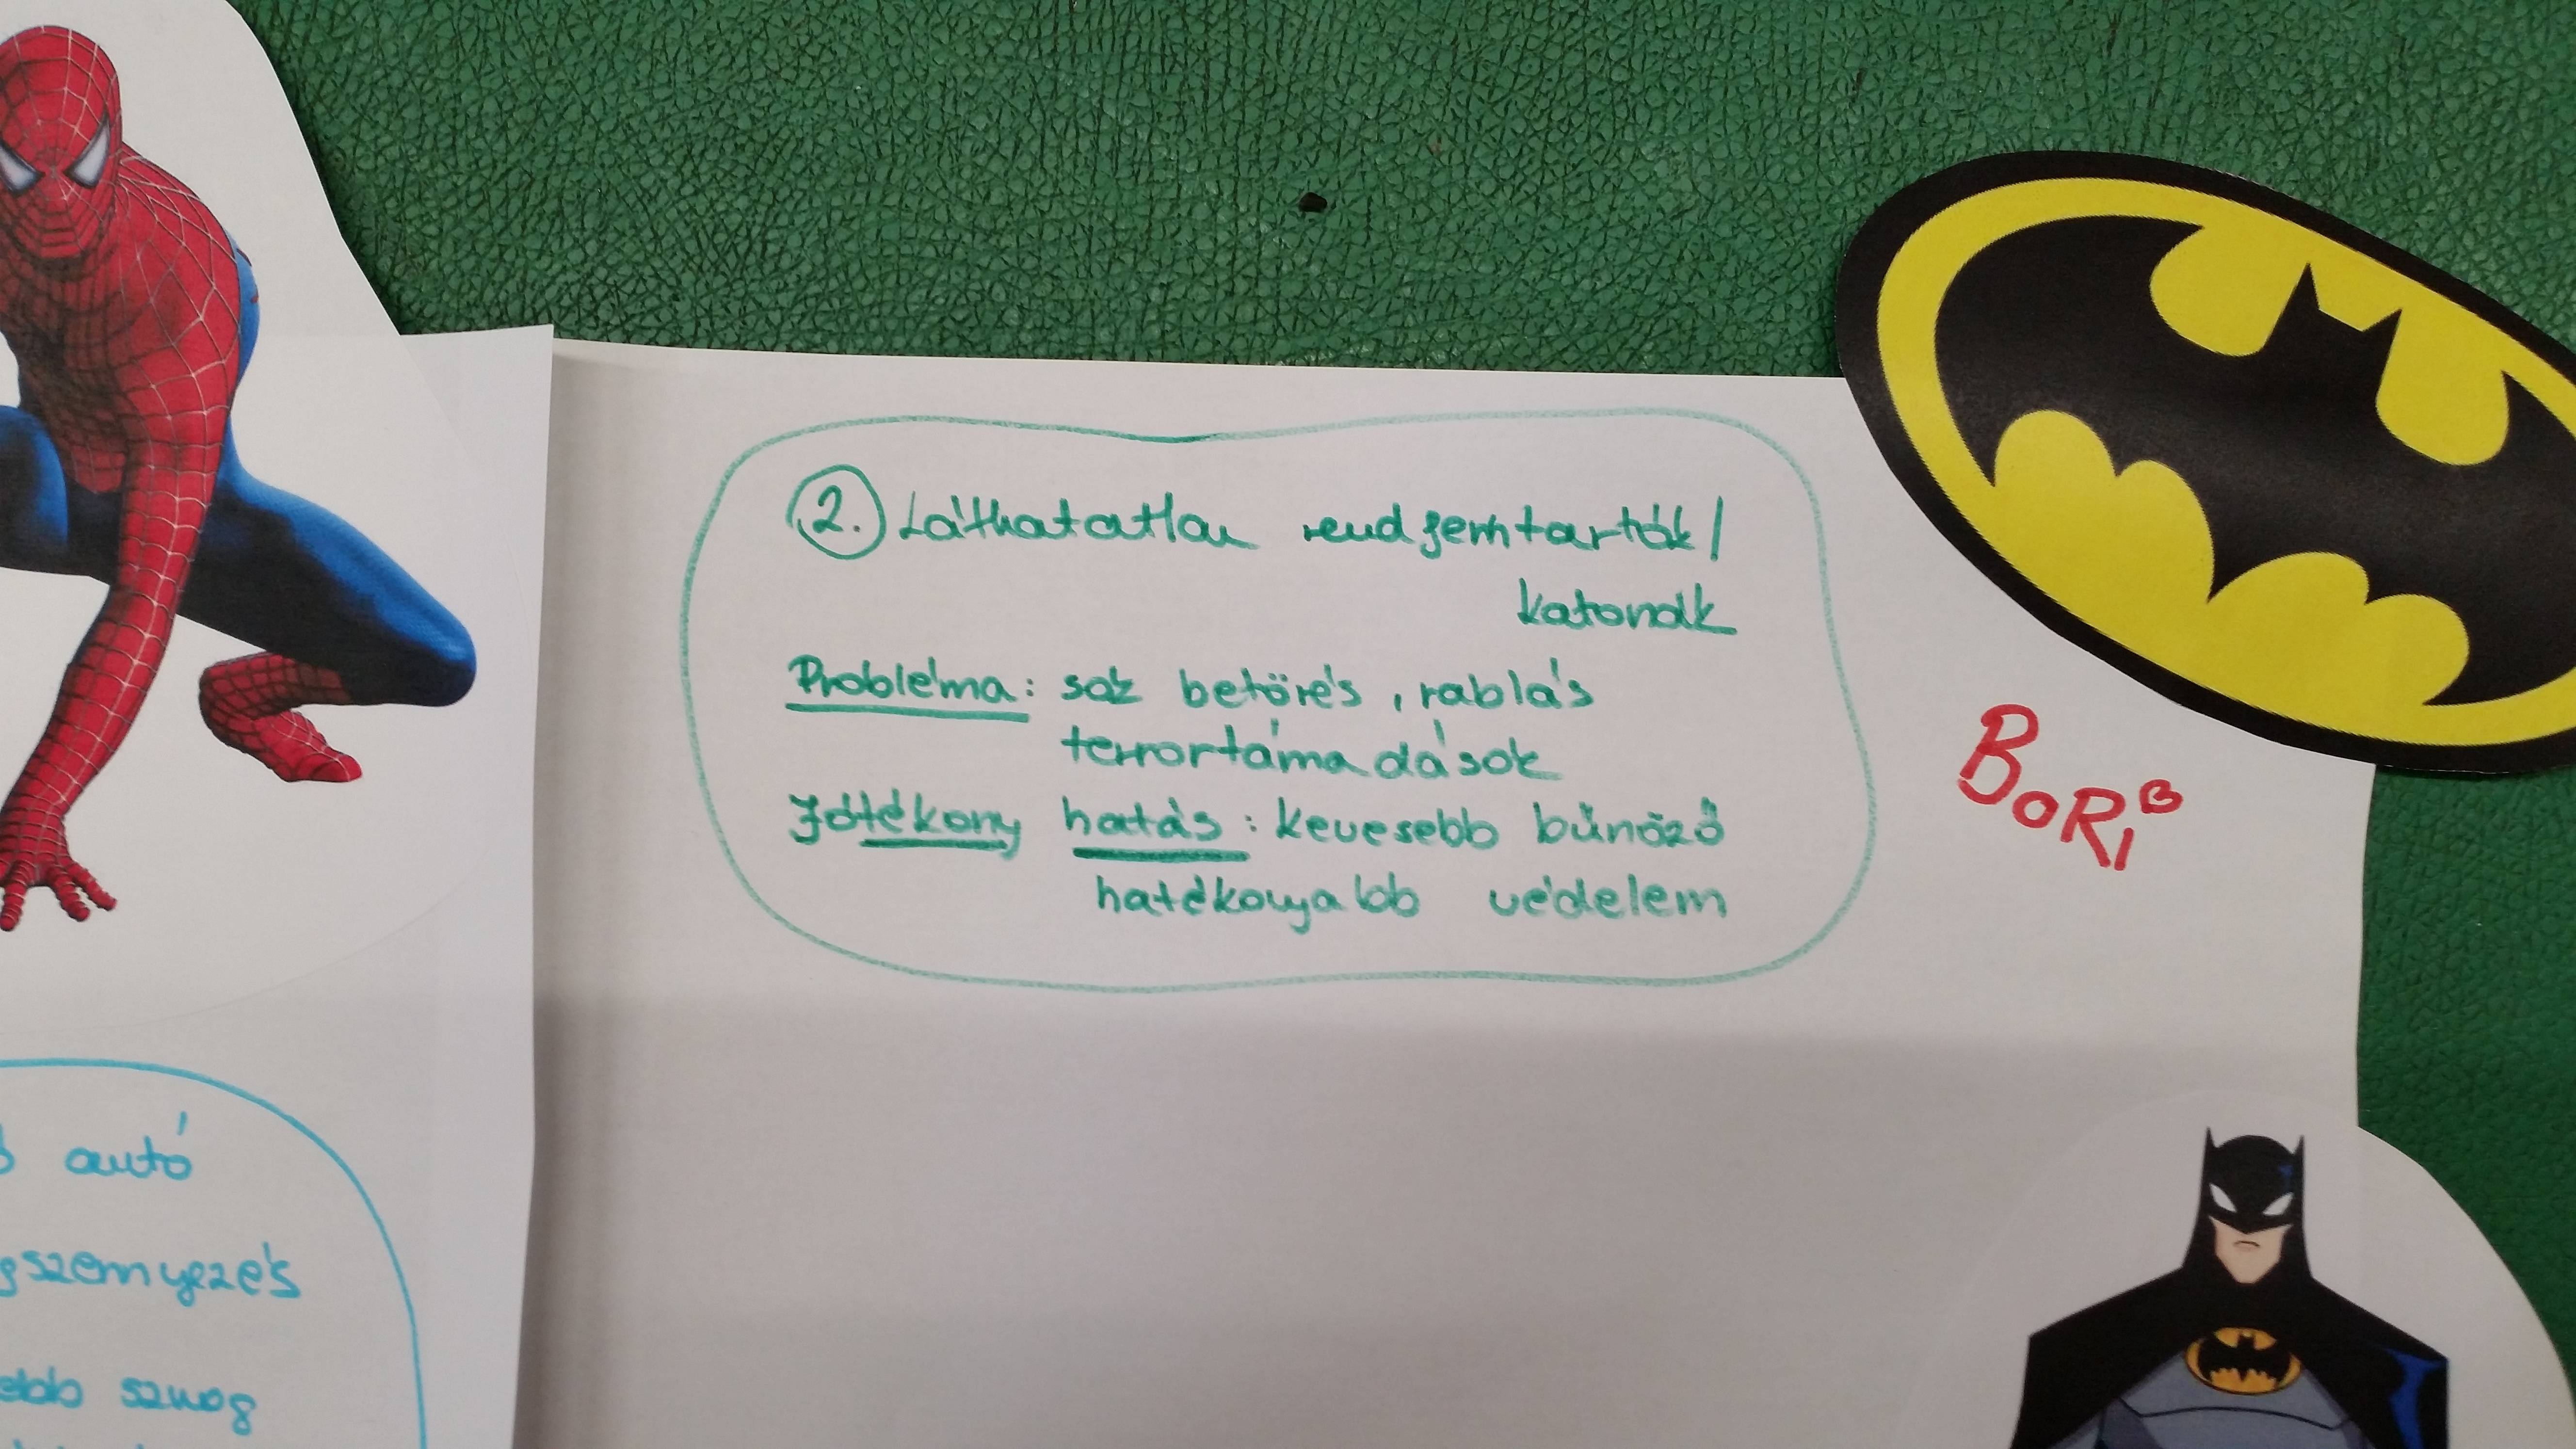 2. Láthatatlan rendfenntartók/
katonák
Probléma: sok betörés, rablás
terrortámadások
Jótékony hatás: kevesebb bűnöző
hatékonyabb védelem
BORI B
autó
szennyezés
szmog